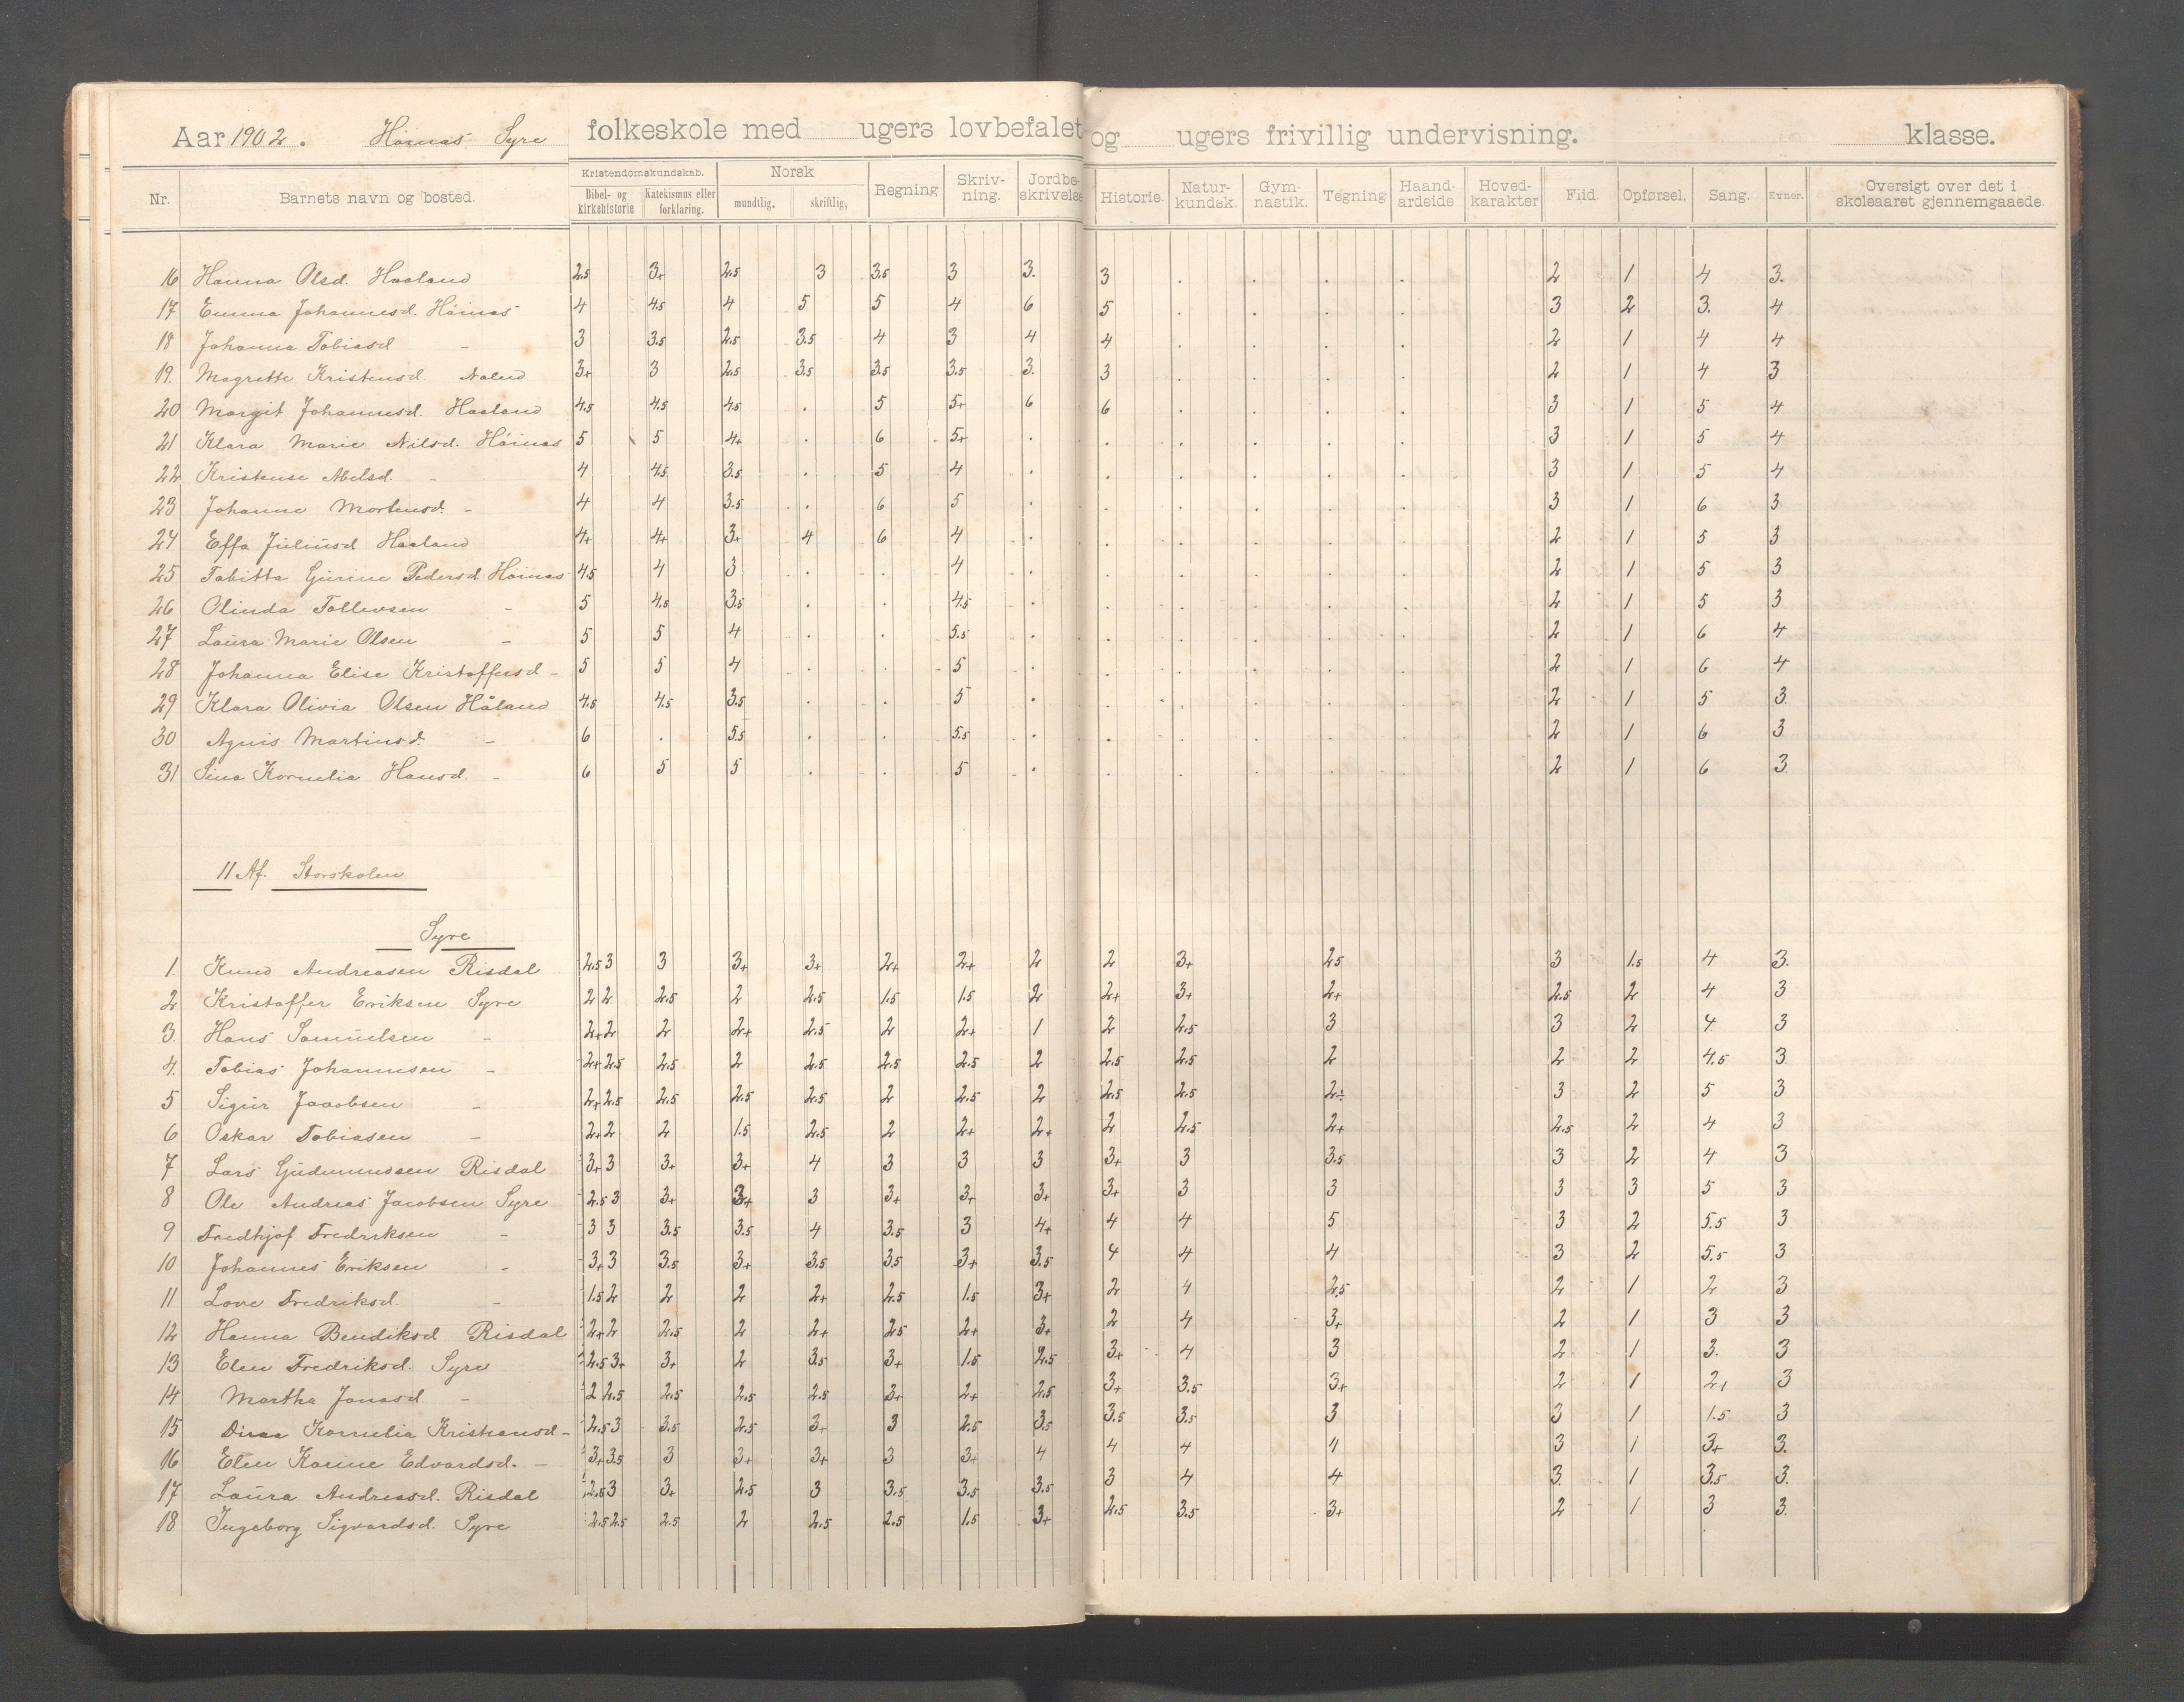 Aar 1902. Höinæs Syre folkeskole med ugers lovbefalet og ugers frivillig undervisning. klasse.
Nr. Barnets navn og bosted. Kristendomskundskab. Bibel- og kirkehistorie Katekismus eller forklaring. Norsk mundtlig. skriftlig, Regning Skrivning. Jordbeskrivelse Historie. Naturkundsk. Gymnastik. Tegning Haandarbeide Hovedkarakter Flid. Opførsel. Sang. Evner. Oversigt over det i skoleaaret gjennemgaaede.
16 Hanna Olsd. Haaland 2.5 3+ 2.5 3 3.5 3 3. 3 . . . . 2 1 4 3.
17 Emma Johannesd. Höinæs 4 4.5 4 5 5 4 6 5 . . . . 3 2 3. 4
18 Johanna Tobiasd - 3 3.5 2.5 3.5 4 3 4 4 . . . . 2 1 4 4
19. Magrette Kristensd. 3+ 3 2.5 3.5 3.5 3.5 3. 3 . . . . 2 1 4 3
20 Margit Johannesd. Haaland 4.5 4.5 4.5 . 5 5+ 6 6 . . . . 3 1 5 4
21 Klara Marie Nilsd. Höinæs 5 5 4+ . 6 5+ . . . . . . 3 1 5 4
22 Kristense Abelsd. - 4 4.5 3.5 . 5 4 . . . . . . 3 1 5 4
23 Johanne Mortensd. - 4 4 3.5 . 6 5 . . . . . . 3 1 6 3
24 Effa Juliusd Haaland 4+ 4+ 3+ 4 6 4 . . . . . . 2 1 5 3
25 Tabitta Gurine Pedersd Höinæs 4.5 4 3 . . 4 . . . . . . 2 1 5 3
26 Olinda Tollevsen - 5 4.5 3.5 . . 4.5 . . . . . . 2 1 5 3
27 Laura Marie Olsen - 5 5 4 . . 5.5 . . . . . . 2 1 6 4
28 Johanna Elise Kristoffersd - 5 5 4 . . 5 . . . . . . 2 1 6 4
29 Klara Olivia Olsen Håland 4.5 4.5 3.5 . . 5 . . . . . . 2 1 5 3.
30 Agnis Martinsd. - 6 . 5.5 . . 5.5 . . . . . . 2 1 6 3
31 Sina Kornelia Hansd. - 6 5 5 . . 5 . . . . . . 2 1 6 3.
II Af. Storskolen
Syre
1. Knud Andreasen Risdal 2.5 3 3 3+ 3+ 2+ 2+ 2 2 3+ 2.5 3 1.5 4 3.
2 Kristoffer Eriksen Syre 2 2 2.5 2 2.5 1.5 1.5 2 2+ 3+ 2+ 2.5 2 4 3
3. Hans Samuelsen - 2+ 2 2 2+ 2.5 2 2+ 1 2 2.5 3 3 2 4. 3
4. Tobias Johannesen - 2+ 2.5 2.5 2 2.5 2.5 2.5 2 2.5 2.5 2 2 2 4.5 3.
5 Sigur Jacobsen - 2+ 2.5 2.5 2.5 2.5 2 2.5 2 2.5 2.5 2÷ 3 2 5 3
6 Oskar Tobiasen - 2+ 2 2 1.5 2.5 2 2+ 2+ 2 2.5 2+ 2.5 2 4 3
7 Lars Gudmundsen Risdal 3+ 3 3+ 3+ 4 3 3 3 3+ 3 3.5 3 2 4 3
8 Ole Andreas Jacobsen Syre 2.5 3 3+ 3+ 3 3+ 3+ 3+ 3+ 3 3 3 3 5 3
9 Fredhjof Fredriksen - 3 3 3.5 3.5 4 3.5 3 4+ 4 4 5 3 2 5.5 3
10 Johannes Eriksen - 3+ 3 3.5 3+ 3.5 3.5 3+ 3.5 4 4 4 3 2 5.5 3
11 Love Fredriksd. - 1.5 2 2 2 2+ 2.5 1.5 3+ 2 4 2.5 2 1 2 3
12 Hanna Bendiksd Risdal 2+ 2 2.5 2 2+ 2.5 2+ 3+ 2 4 3+ 2 1 3 3
13 Elen Fredriksd. Syre 2.5 3+ 3+ 2 3.5 3+ 1.5 2.5 3+ 4 3 2 1 3. 3
14 Martha Jonasd. - 2 2.5 2.5 2.5 2.5 3+ 2+ 2.5 3+ 3.5 3+ 2 1 2+ 3
15 Kornelia Kristiansd - 2.5 3 3.5 2.5 3+ 3 2.5 3.5 3.5 3.5 3 3 1 1.5 3
16 Elen Karine Edvardsd. - 3+ 3.5 3 3+ 3+ 3 3+ 4 4 4 4 3 1 3+ 3.
17 Laura Andreasd. Risdal 2.5 3 3+ 2.5 3 3.5 3.5 3.5 3 4 4 3. 1 3.5 3.
18 Ingeborg Sigvardsd. Syre 2.5 2.5 2.5 2 2.5 2.5 1.5 3+ 2.5 3.5 3+ 2 1 3 3.